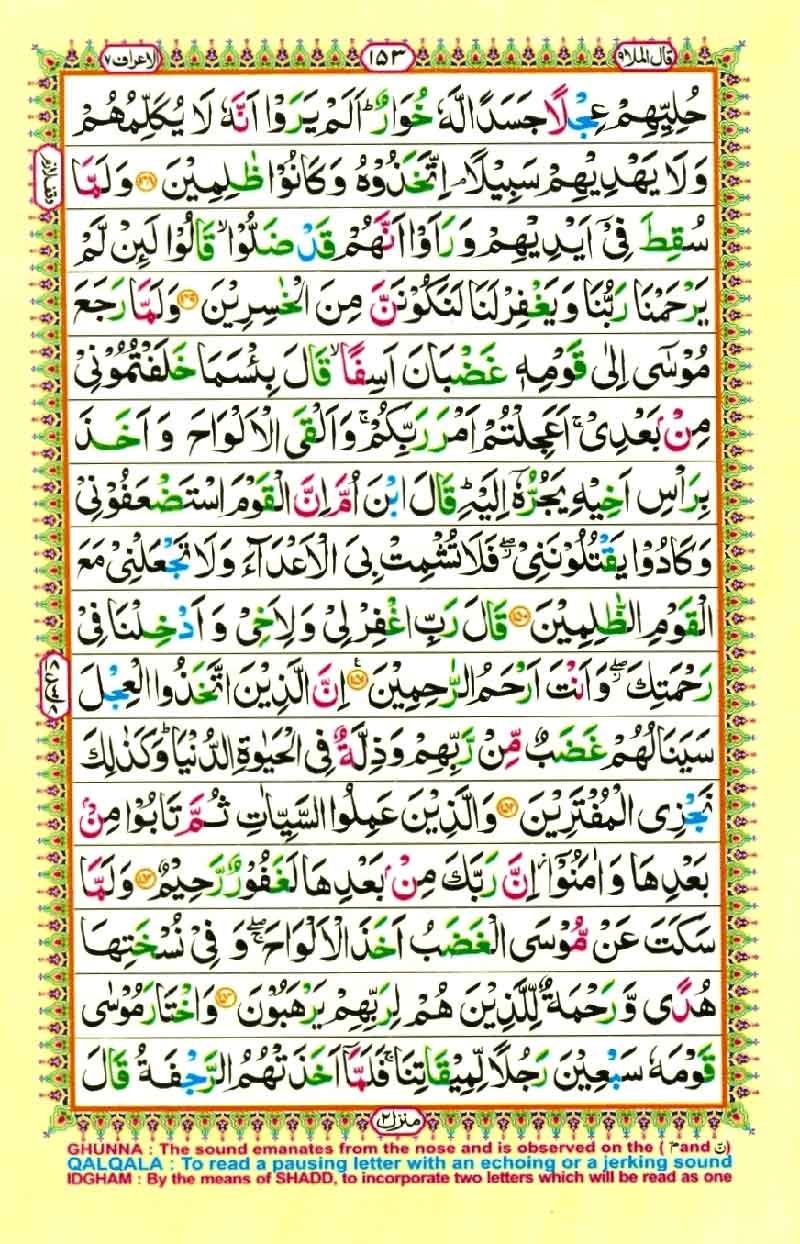 قال الملا ٩
١٥٣
الاعراف ٧
حُلِيِّهِمْ عِجْلًا جَسَدًا لَّهٗ خُوَارٌ ؕ اَلَمْ يَرَوْا اَنَّهٗ لَا يُكَلِّمُهُمْ
وَلَا يَهْدِيْهِمْ سَبِيْلًا ۘ اِتَّخَذُوْهُ وَكَانُوْا ظٰلِمِيْنَ ﴿۱۴۸﴾ وَلَمَّا
سُقِطَ فِىْۤ اَيْدِيْهِمْ وَرَاَوْا اَنَّهُمْ قَدْ ضَلُّوْا ۙ قَالُوْا لَئِنْ لَّمْ
يَرْحَمْنَا رَبُّنَا وَيَغْفِرْ لَنَا لَنَكُوْنَنَّ مِنَ الْخٰسِرِيْنَ ﴿۱۴۹﴾ وَلَمَّا رَجَعَ
مُوْسٰٓى اِلٰى قَوْمِهٖ غَضْبَانَ اَسِفًا ۙ قَالَ بِئْسَمَا خَلَفْتُمُوْنِىْ
مِنْۢ بَعْدِىْ ۚ اَعَجِلْتُمْ اَمْرَ رَبِّكُمْ ۚ وَاَلْقَى الْاَلْوَاحَ وَ اَخَذَ
بِرَاْسِ اَخِيْهِ يَجُرُّهٗۤ اِلَيْهِ ؕ قَالَ ابْنَ اُمَّ اِنَّ الْقَوْمَ اسْتَضْعَفُوْنِىْ
وَكَادُوْا يَقْتُلُوْنَنِىْ ۖ فَلَا تُشْمِتْ بِىَ الْاَعْدَآءَ وَلَا تَجْعَلْنِىْ مَعَ
الْقَوْمِ الظّٰلِمِيْنَ ﴿۱۵۰﴾ قَالَ رَبِّ اغْفِرْ لِىْ وَلِاَخِىْ وَ اَدْخِلْنَا فِىْ
رَحْمَتِكَ ۖ وَاَنْتَ اَرْحَمُ الرّٰحِمِيْنَ ﴿۱۵۱﴾ اِنَّ الَّذِيْنَ اتَّخَذُوا الْعِجْلَ
سَيَنَالُهُمْ غَضَبٌ مِّنْ رَّبِّهِمْ وَذِلَّةٌ فِى الْحَيٰوةِ الدُّنْيَا ؕ وَكَذٰلِكَ
نَجْزِى الْمُفْتَرِيْنَ ﴿۱۵۲﴾ وَالَّذِيْنَ عَمِلُوا السَّيِّاٰتِ ثُمَّ تَابُوْا مِنْۢ
بَعْدِهَا وَ اٰمَنُوْۤا ۫ اِنَّ رَبَّكَ مِنْۢ بَعْدِهَا لَغَفُوْرٌ رَّحِيْمٌ ﴿۱۵۳﴾ وَلَمَّا
سَكَتَ عَنْ مُّوْسَى الْغَضَبُ اَخَذَ الْاَلْوَاحَ ۖۚ وَ فِىْ نُسْخَتِهَا
هُدًى وَّ رَحْمَةٌ لِّلَّذِيْنَ هُمْ لِرَبِّهِمْ يَرْهَبُوْنَ ﴿۱۵۴﴾ وَاخْتَارَ مُوْسٰى
قَوْمَهٗ سَبْعِيْنَ رَجُلًا لِّمِيْقَاتِنَا ۚ فَلَمَّاۤ اَخَذَتْهُمُ الرَّجْفَةُ قَالَ
منزل ٢
GHUNNA : The sound emanates from the nose and is observed on the ( مّ and نّ)
QALQALA : To read a pausing letter with an echoing or a jerking sound
IDGHAM : By the means of SHADD, to incorporate two letters which will be read as one